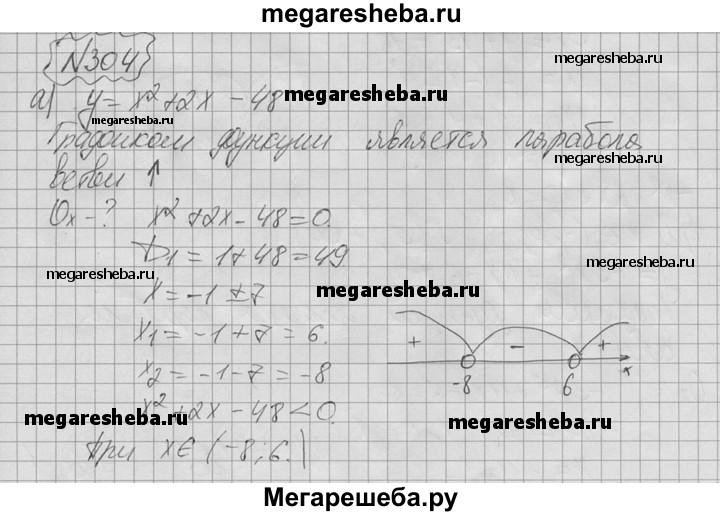 megaresheba.ru
N304
megaresheba.ru
а) y = x² + 2x - 48
megaresheba.ru
megaresheba.ru
Графиком функции является парабола
megaresheba.ru
ветви ↑
Ox - ? x² + 2x - 48 = 0.
D₁ = 1 + 48 = 49
megaresheba.ru
megaresheba.ru
x = -1 ± 7
megaresheba.ru
x₁ = -1 + 7 = 6.
+ - +
-8 6 x
x₂ = -1 - 7 = -8
x² + 2x - 48 < 0.
megaresheba.ru
megaresheba.ru
при x ∈ (-8; 6.)
Мегарешеба.ру